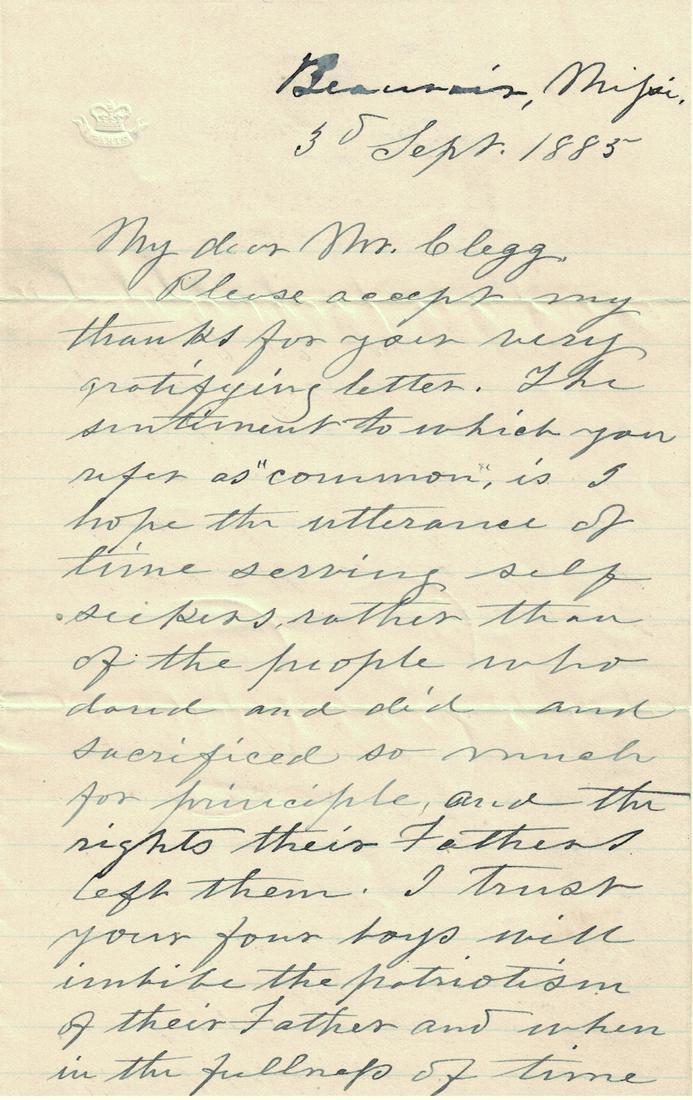 Beauvoir, Missi.
3d Sept. 1885
My dear Mr. Clegg,
Please accept my
thanks for your very
gratifying letter. The
sentiment to which you
refer as "common", is I
hope the utterance of
time serving self
seekers, rather than
of the people who
dared and did and
sacrificed so much
for principle, and the
rights their Fathers
left them. I trust
your four boys will
imbibe the patriotism
of their Father and when
in the fullness of time